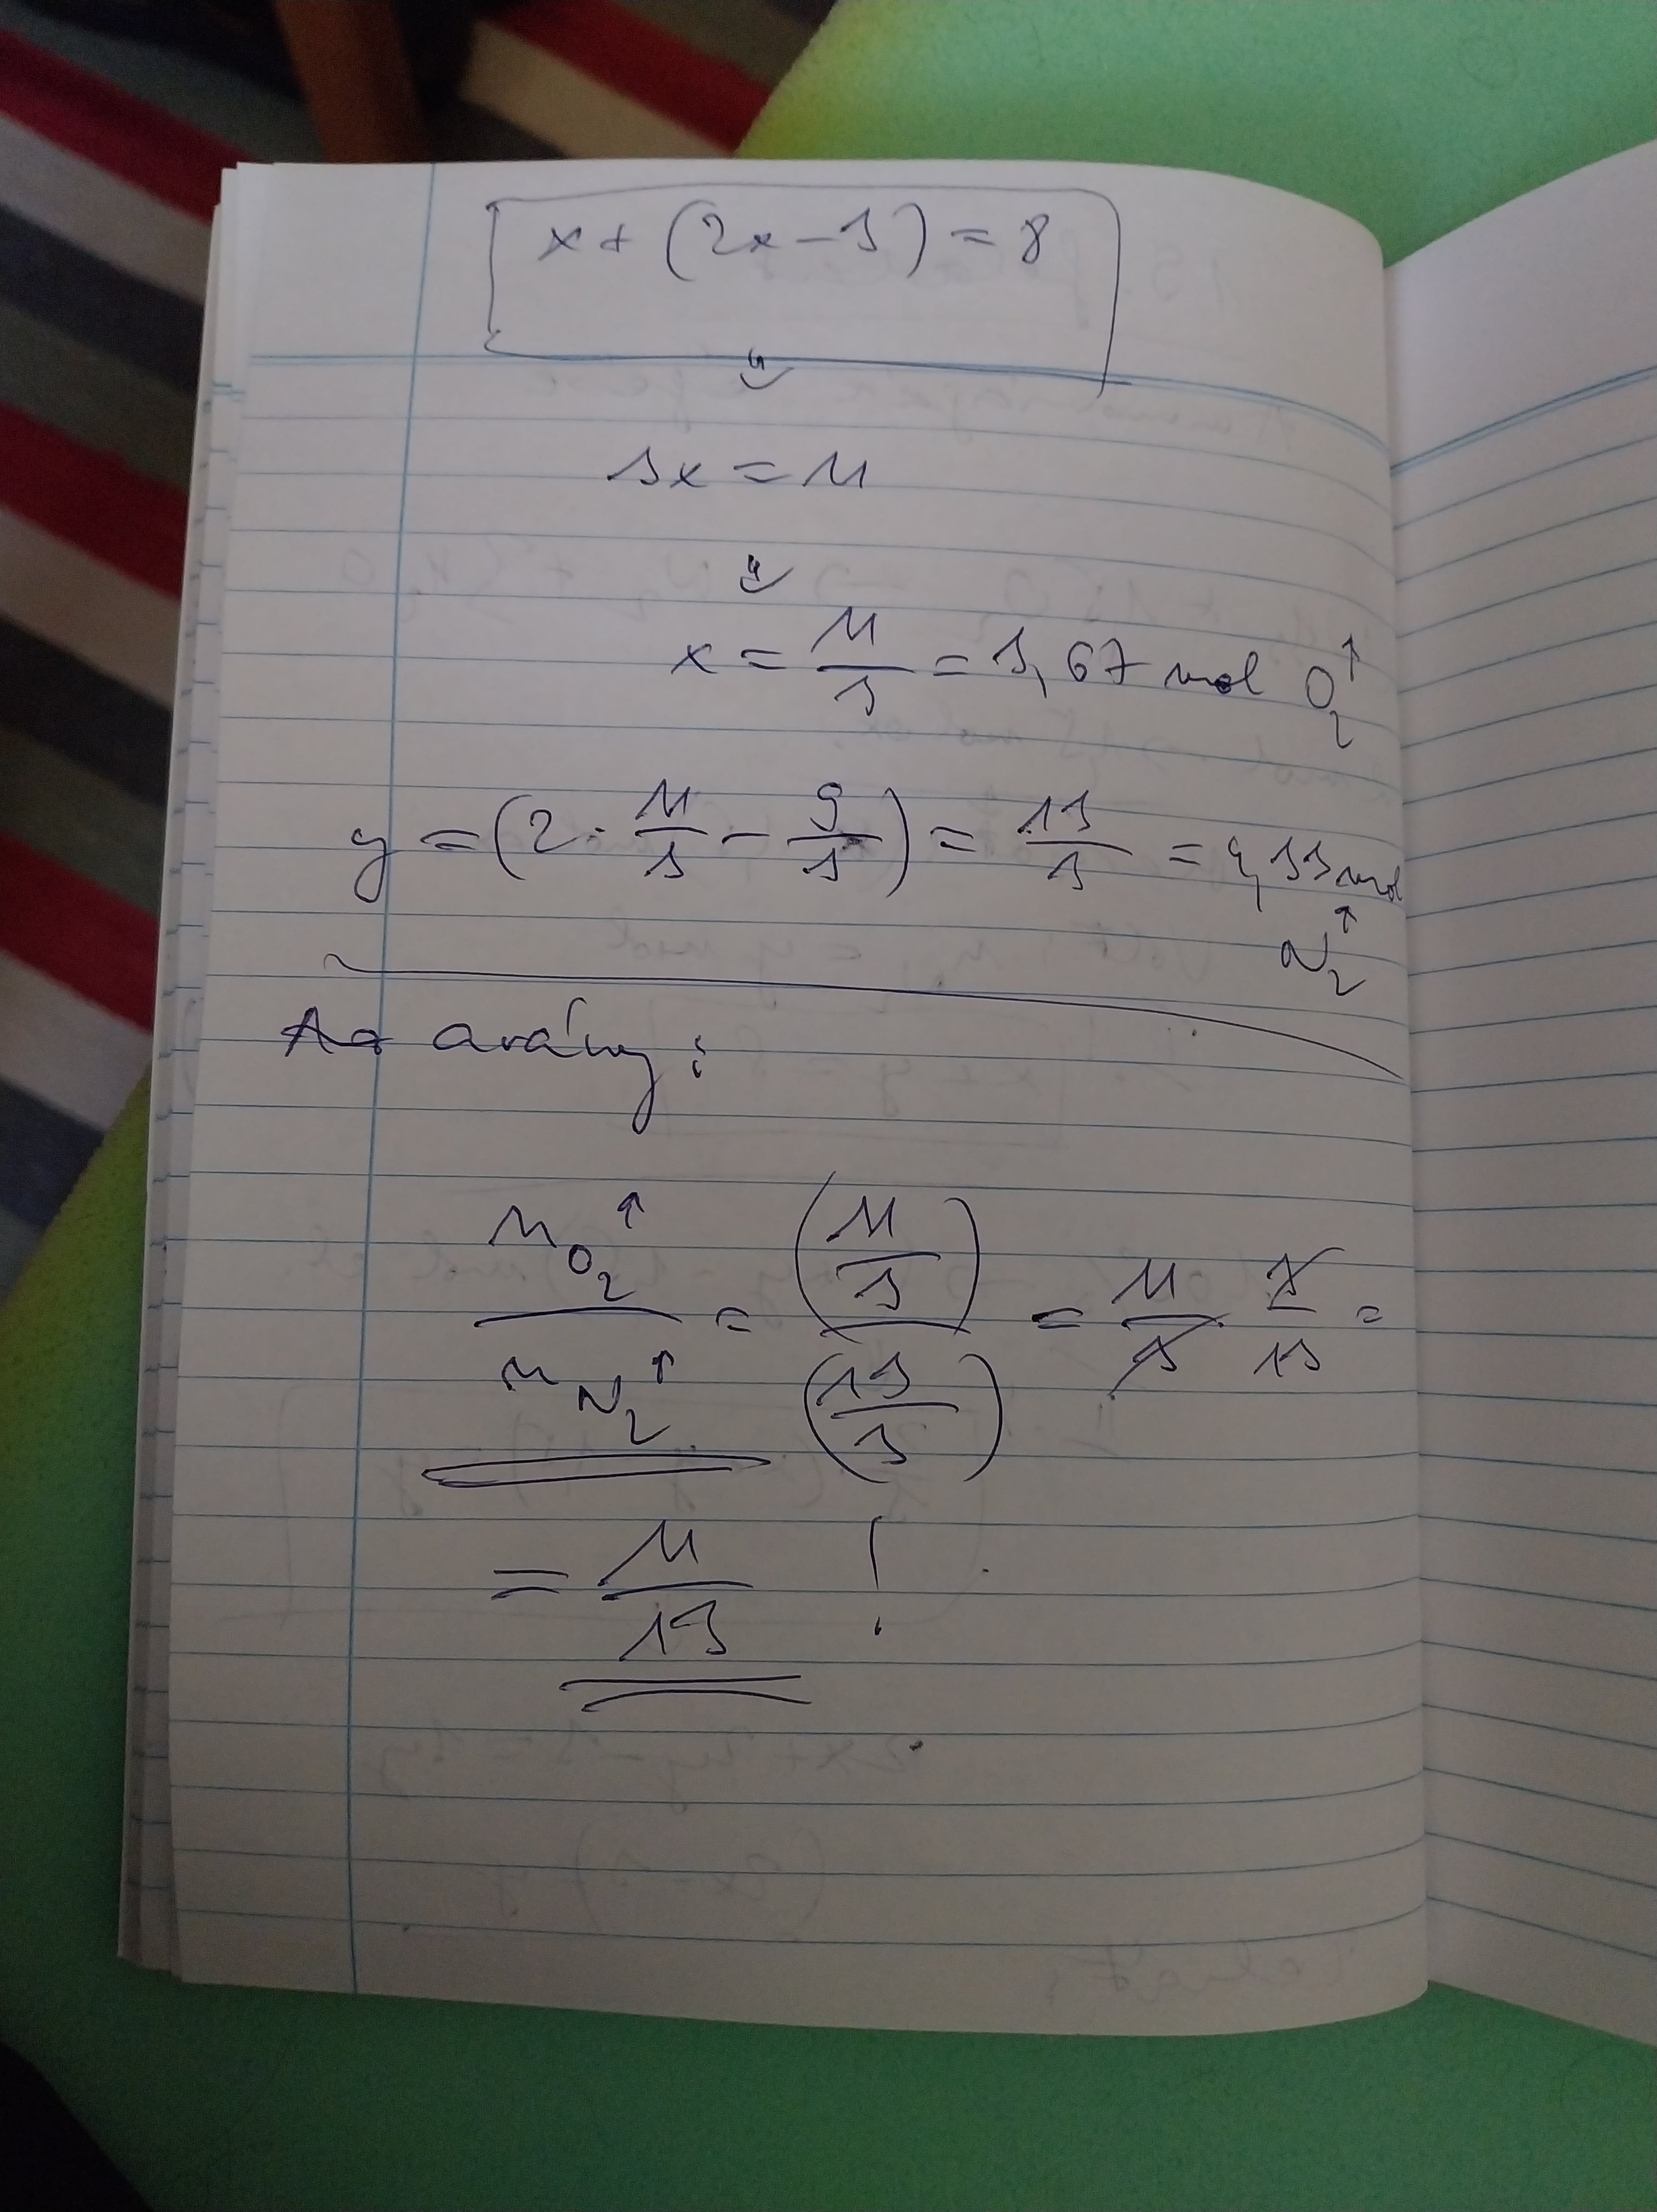 x + (2x - 3) = 8
⇓
3x = 11
⇓
x = 11/3 = 3,67 mol O₂↑
y = (2 · 11/3 - 9/3) = 13/3 = 4,33 mol
N₂↑
Az arány:
n O₂↑ / n N₂↑ = (11/3) / (13/3) = 11/3 · 3/13 =
= 11/13 !